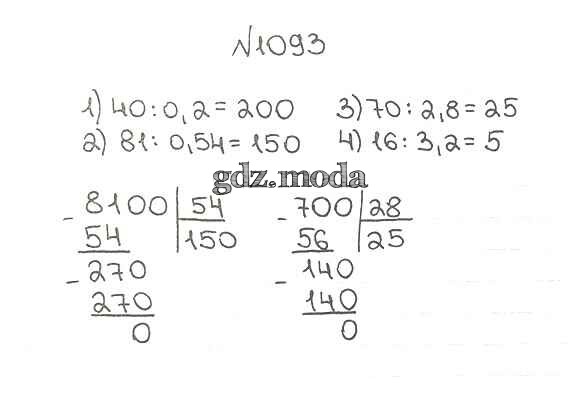 №1093
1) 40 : 0,2 = 200
2) 81 : 0,54 = 150
3) 70 : 2,8 = 25
4) 16 : 3,2 = 5
gdz.moda
- 8100 | 54
54 | 150
- 270
270
0
- 700 | 28
56 | 25
- 140
140
0